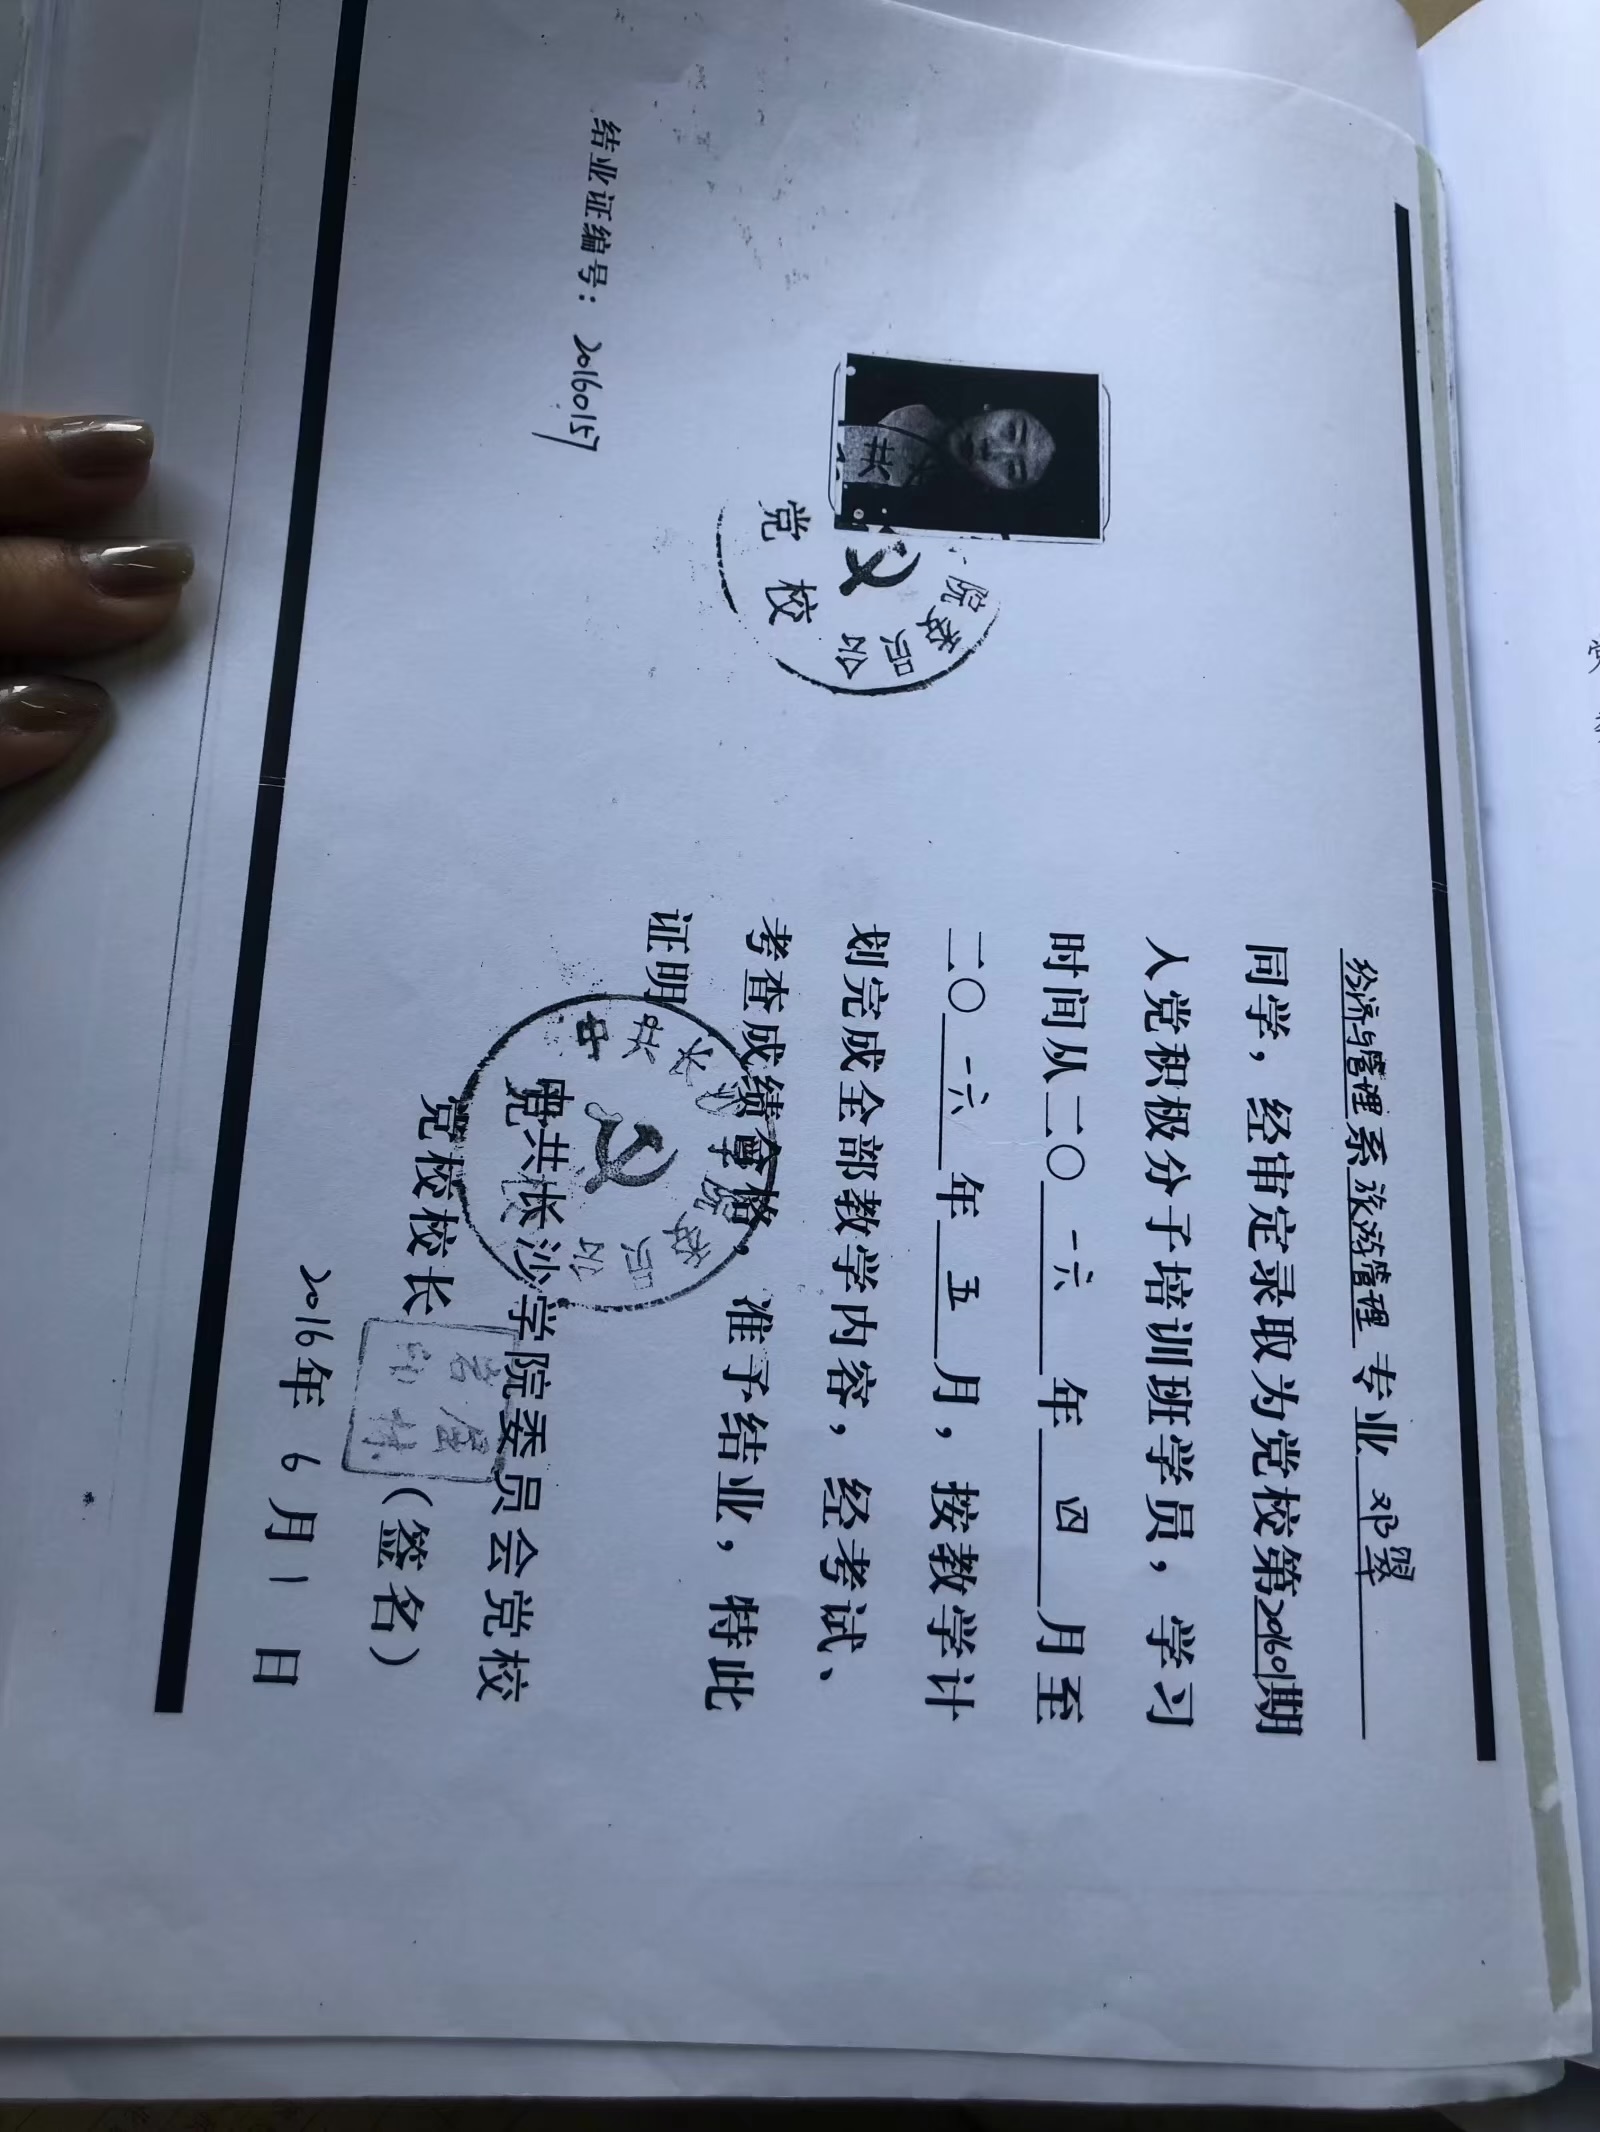 经济与管理系旅游管理专业邓翠
同学，经审定录取为党校第201601期
入党积极分子培训班学员，学习
时间从二〇一六年四月至
二〇一六年五月，按教学计
划完成全部教学内容，经考试、
考查成绩合格，准予结业，特此
证明
中共长沙学院委员会党校
党校校长（签名）
2016年6月1日
结业证编号：20160157
院委员会
党校
中共长 院委员会